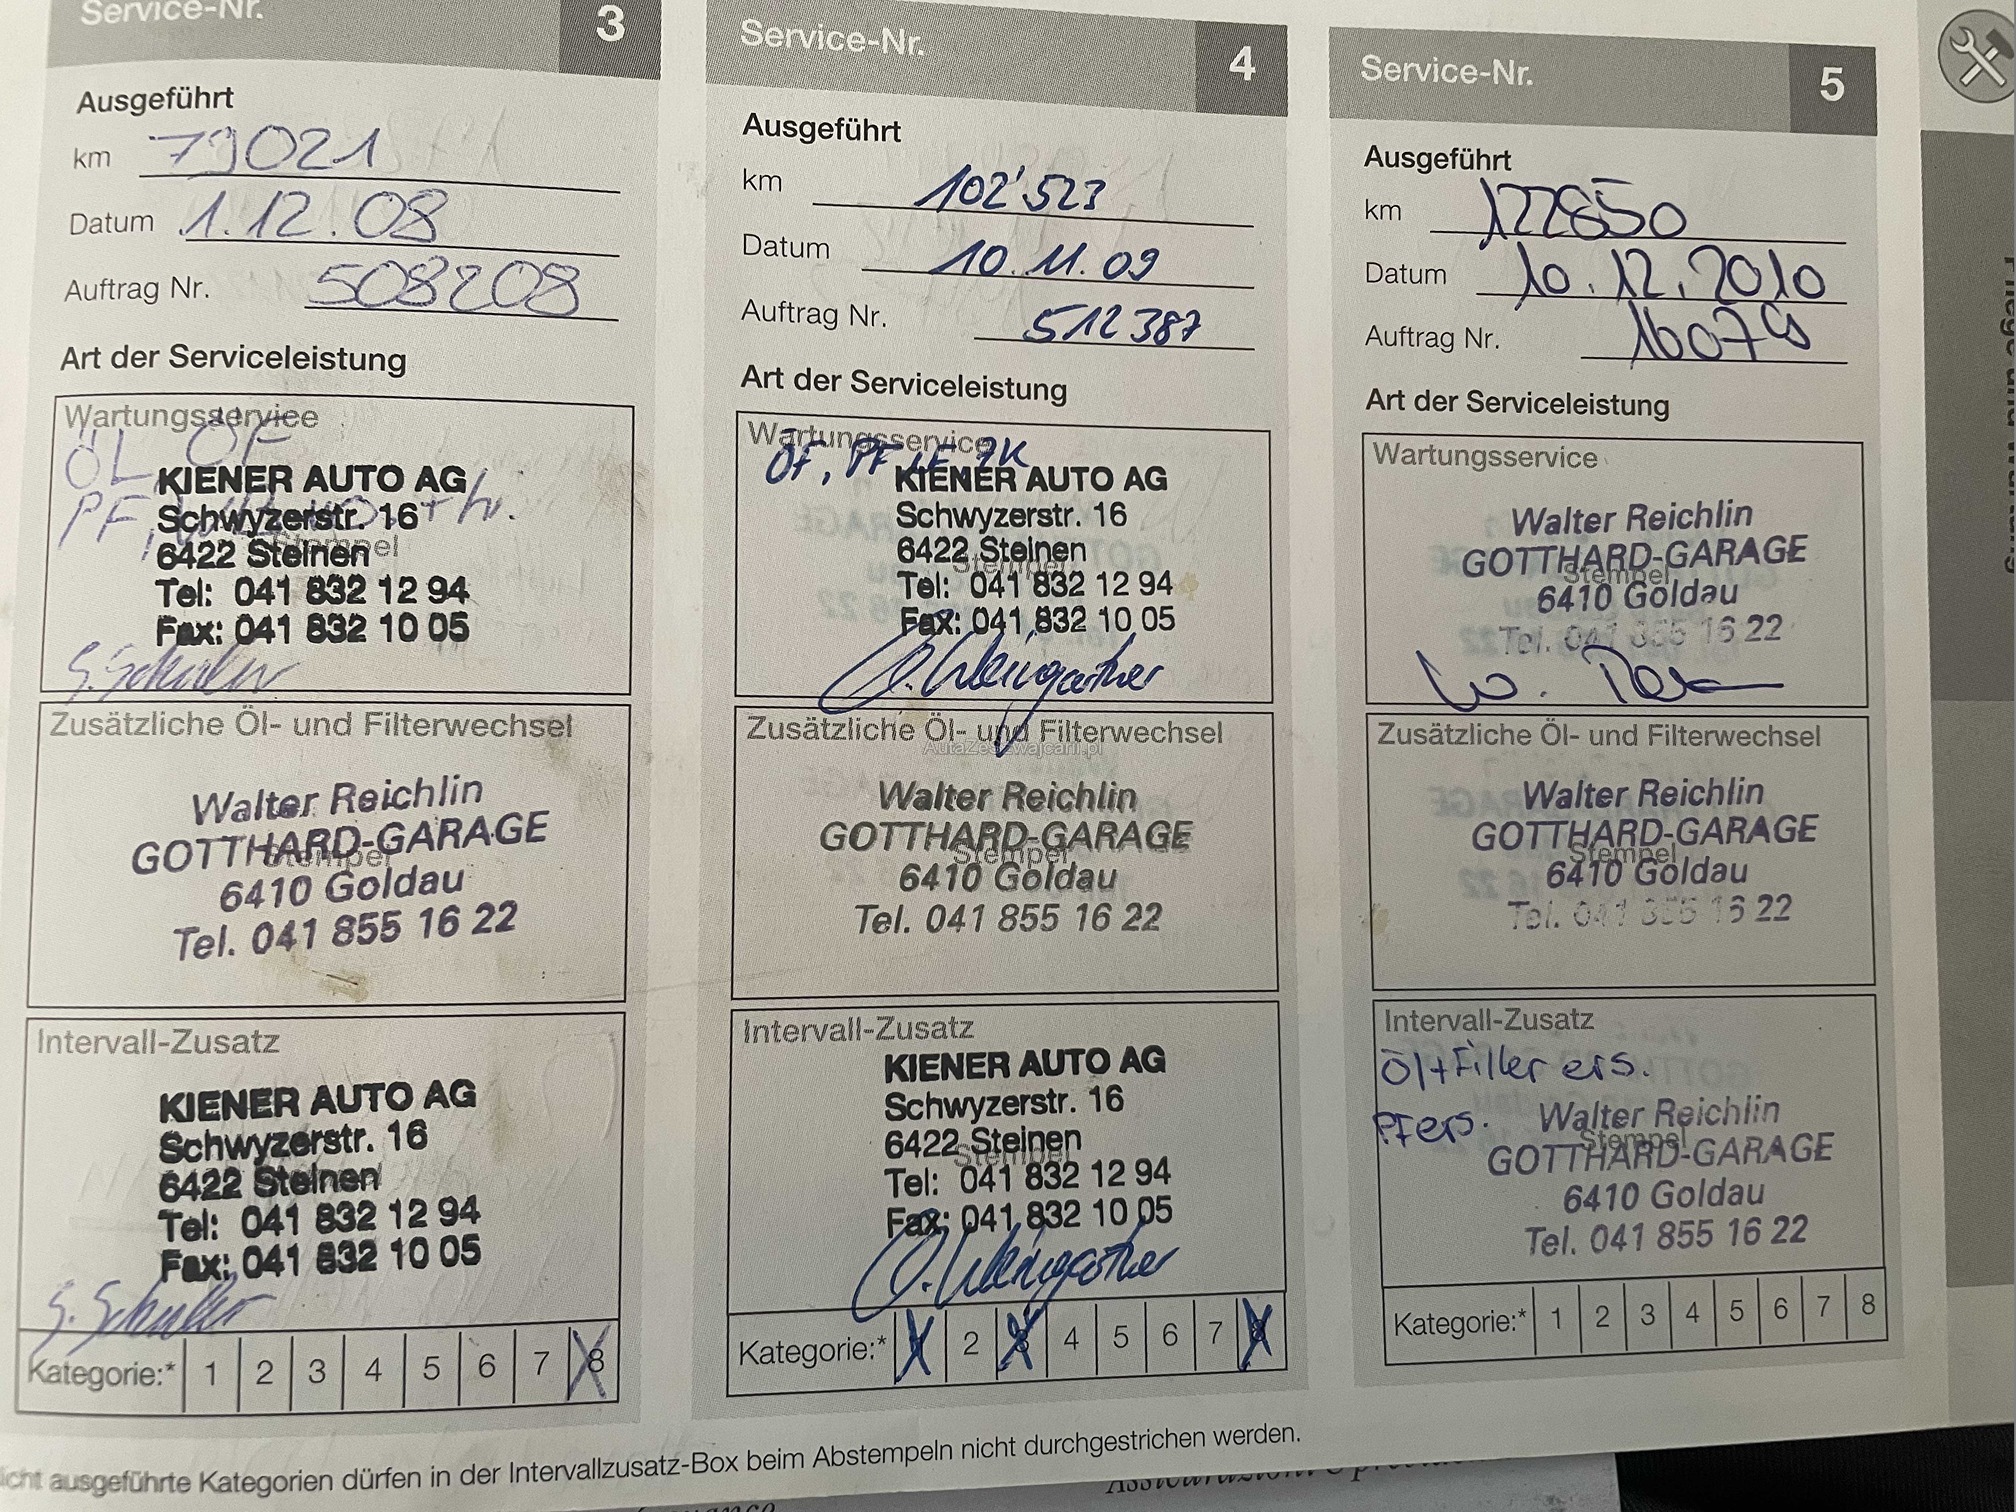 Service-Nr. 3
Ausgeführt
km 79021
Datum 1.12.08
Auftrag Nr. 508208
Art der Serviceleistung
Wartungsservice
ÖL ÖF
KIENER AUTO AG
PF,
Schwyzerstr. 16
6422 Steinen
Stempel
Tel: 041 832 12 94
Fax: 041 832 10 05
S. Schuler
Zusätzliche Öl- und Filterwechsel
Walter Reichlin
GOTTHARD-GARAGE
Stempel
6410 Goldau
Tel. 041 855 16 22
Intervall-Zusatz
KIENER AUTO AG
Schwyzerstr. 16
6422 Steinen
Tel: 041 832 12 94
Fax: 041 832 10 05
S. Schuler
Kategorie:* 1 2 3 4 5 6 7 8
Service-Nr. 4
Ausgeführt
km 102'523
Datum 10.11.09
Auftrag Nr. 512387
Art der Serviceleistung
Wartungsservice
ÖF, PF
KIENER AUTO AG
Schwyzerstr. 16
6422 Steinen
Stempel
Tel: 041 832 12 94
Fax: 041 832 10 05
Zusätzliche Öl- und Filterwechsel
AutaZeSzwajcarii.pl
Walter Reichlin
GOTTHARD-GARAGE
Stempel
6410 Goldau
Tel. 041 855 16 22
Intervall-Zusatz
KIENER AUTO AG
Schwyzerstr. 16
6422 Steinen
Stempel
Tel: 041 832 12 94
Fax: 041 832 10 05
Kategorie:* 1 2 3 4 5 6 7 8
Service-Nr. 5
Ausgeführt
km 122850
Datum 10.12.2010
Auftrag Nr.
Art der Serviceleistung
Wartungsservice
Walter Reichlin
GOTTHARD-GARAGE
Stempel
6410 Goldau
Tel. 041 855 16 22
Zusätzliche Öl- und Filterwechsel
Walter Reichlin
GOTTHARD-GARAGE
Stempel
6410 Goldau
Tel. 041 855 16 22
Intervall-Zusatz
Öl+Filter ers.
PF ers.
Walter Reichlin
Stempel
GOTTHARD-GARAGE
6410 Goldau
Tel. 041 855 16 22
Kategorie:* 1 2 3 4 5 6 7 8
icht ausgeführte Kategorien dürfen in der Intervallzusatz-Box beim Abstempeln nicht durchgestrichen werden.